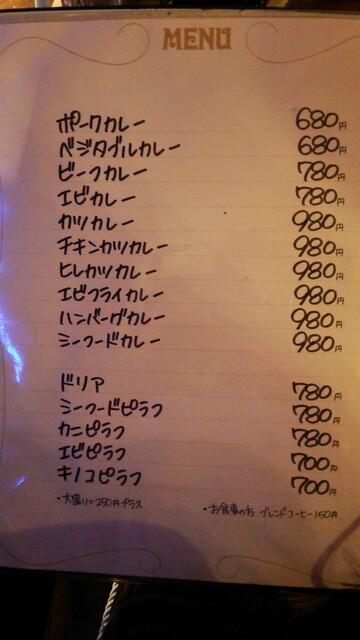 MENU
ポークカレー 680円
ベジタブルカレー 680円
ビーフカレー 780円
エビカレー 780円
カツカレー 980円
チキンカツカレー 980円
ヒレカツカレー 980円
エビフライカレー 980円
ハンバーグカレー 980円
シーフードカレー 980円
ドリア 780円
シーフードピラフ 780円
カニピラフ 780円
エビピラフ 700円
キノコピラフ 700円
・大盛りは250円プラス ・お食事の方 ブレンドコーヒー150円